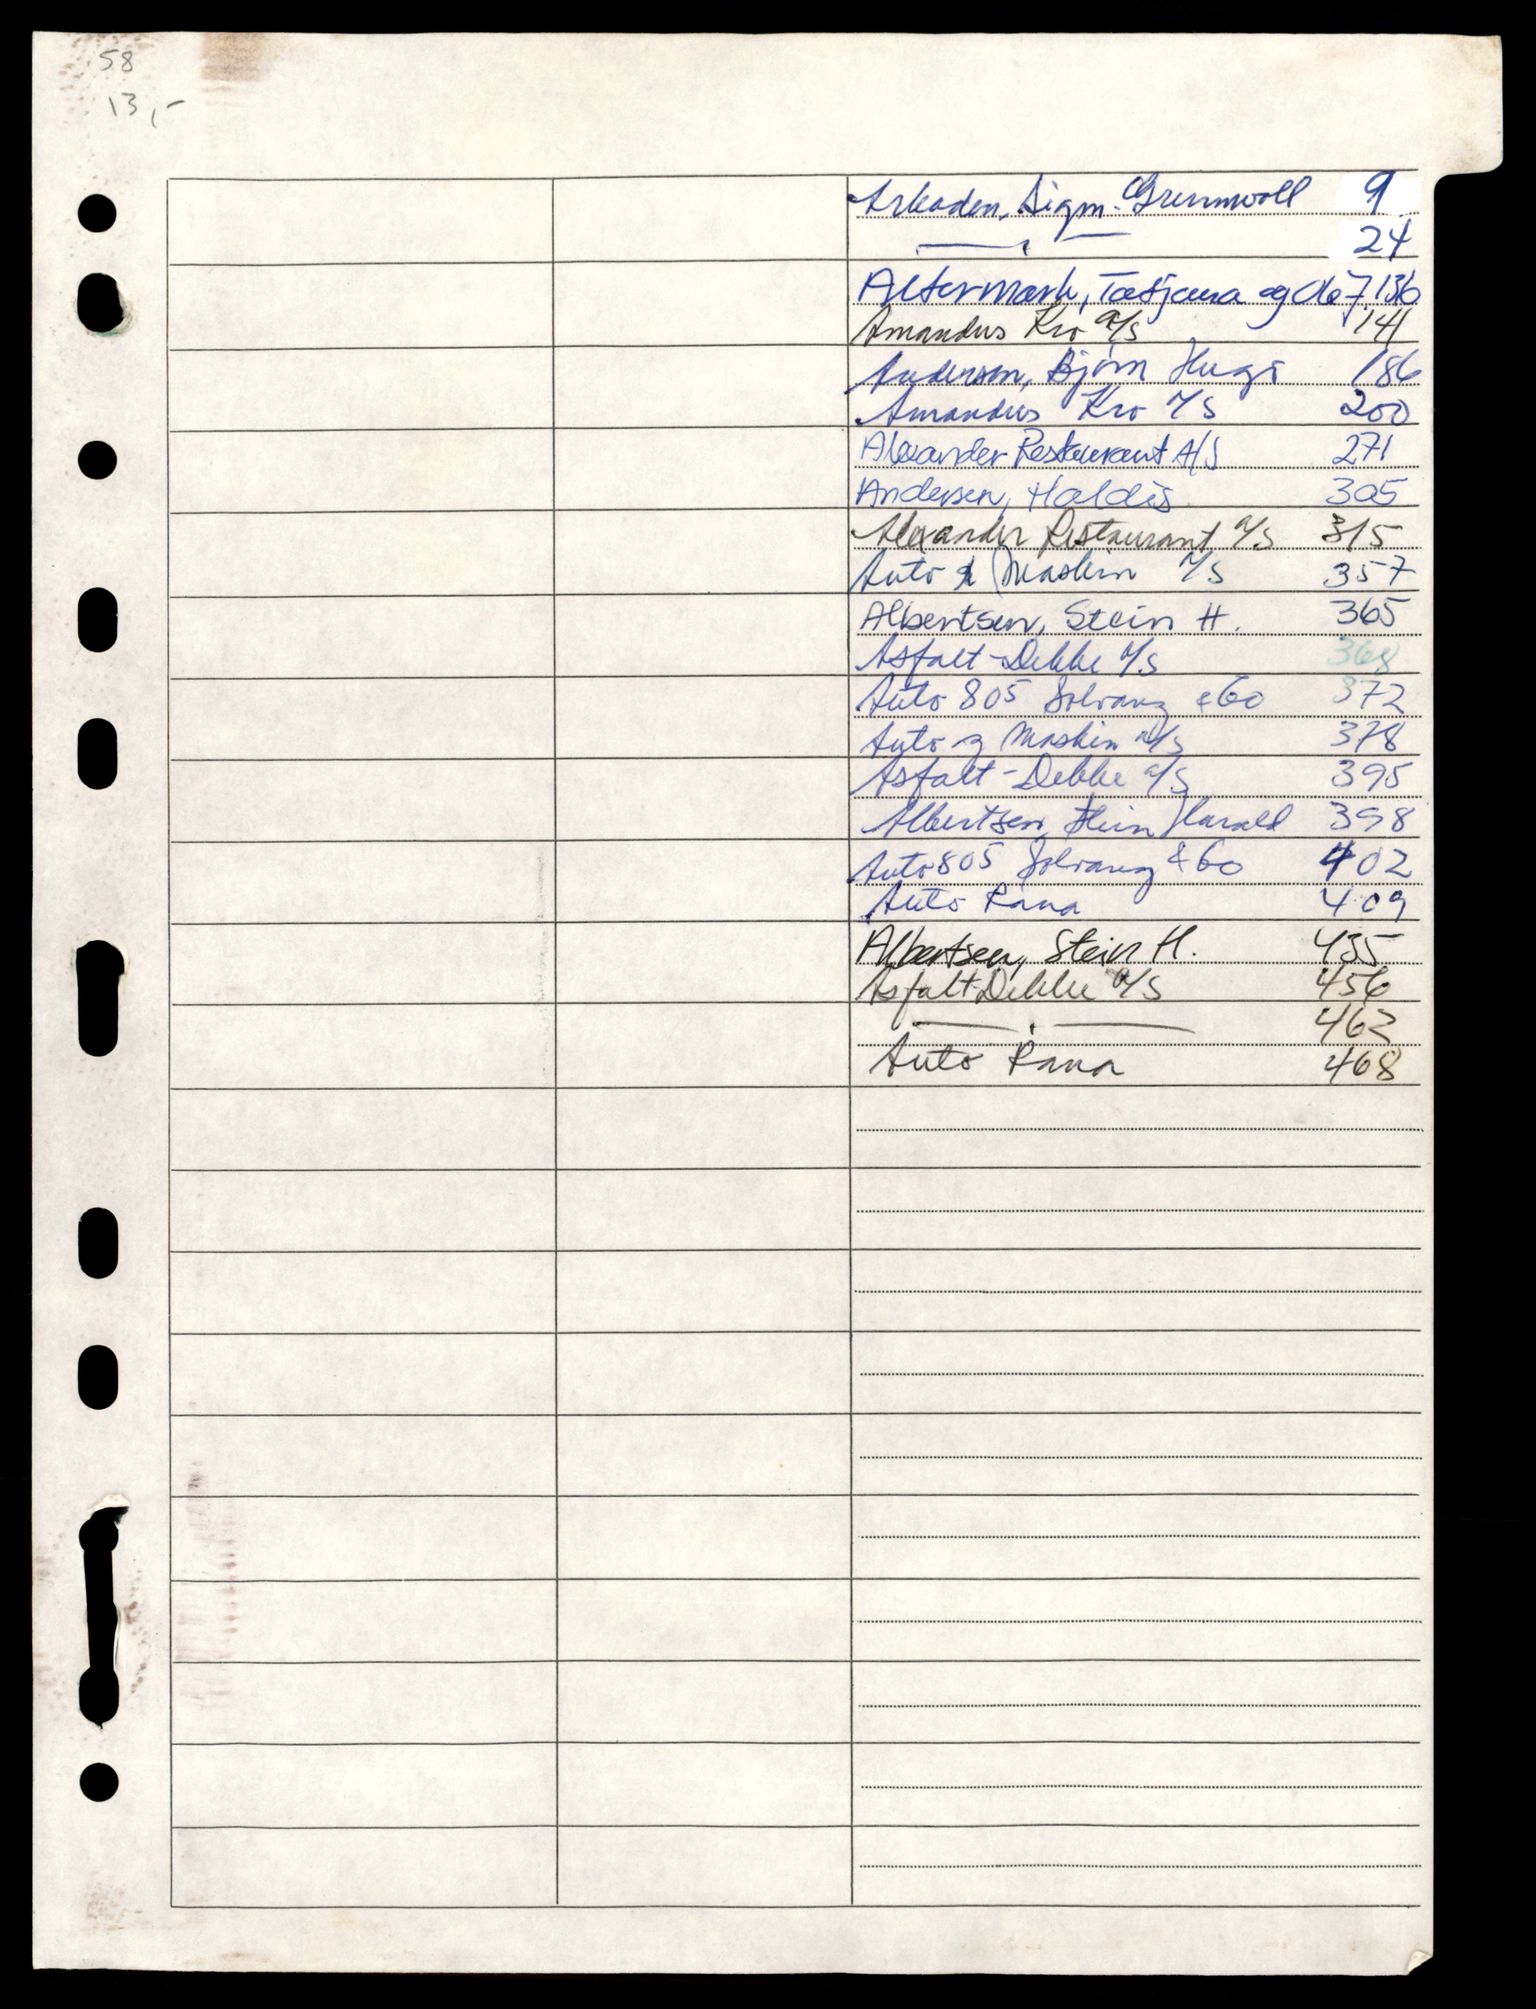 58
13,-
Arkaden, Sigm. Grennvoll 9
— " — 24
Altermark, Tatjana og 136
Amandus Kro a/s 141
Andersen, Bjørn Hugo 186
Amandus Kro A/S 200
Alexander Restaurant A/S 271
Andersen, Haldis 305
Alexander Restaurant a/s 315
Auto & Maskin A/S 357
Albertsen, Stein H. 365
Asfalt-Dekke A/S 368
Auto 805 Solvang & Co 372
Auto og Maskin a/s 378
Asfalt-Dekke a/s 395
Albertsen, Stein Harald 398
Auto 805 Solvang & Co 402
Auto Rana 409
Albertsen, Stein H. 435
Asfalt-Dekke A/S 456
— " — 462
Auto Rana 468